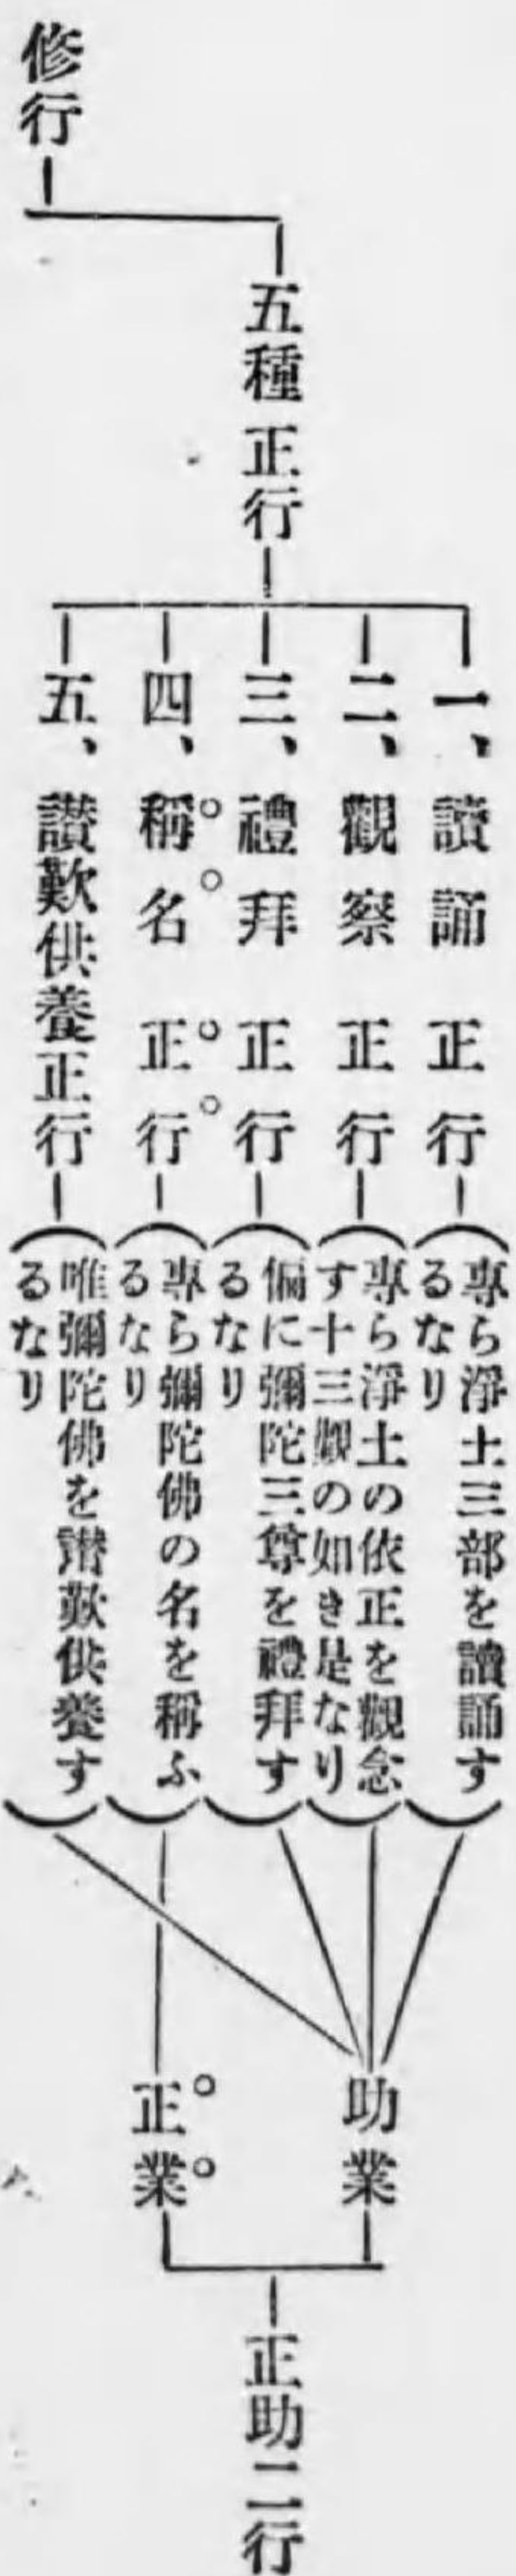 修行
五種正行
一、讀誦正行
專ら淨土三部を讀誦す
るなり
二、觀察正行
專ら淨土の依正を觀念
す十三觀の如き是なり
三、禮拜正行
偏に彌陀三尊を禮拜す
るなり
四、稱名正行
專ら彌陀佛の名を稱ふ
るなり
五、讃歎供養正行
唯彌陀佛を讃歎供養す
るなり
助業
正業
正助二行